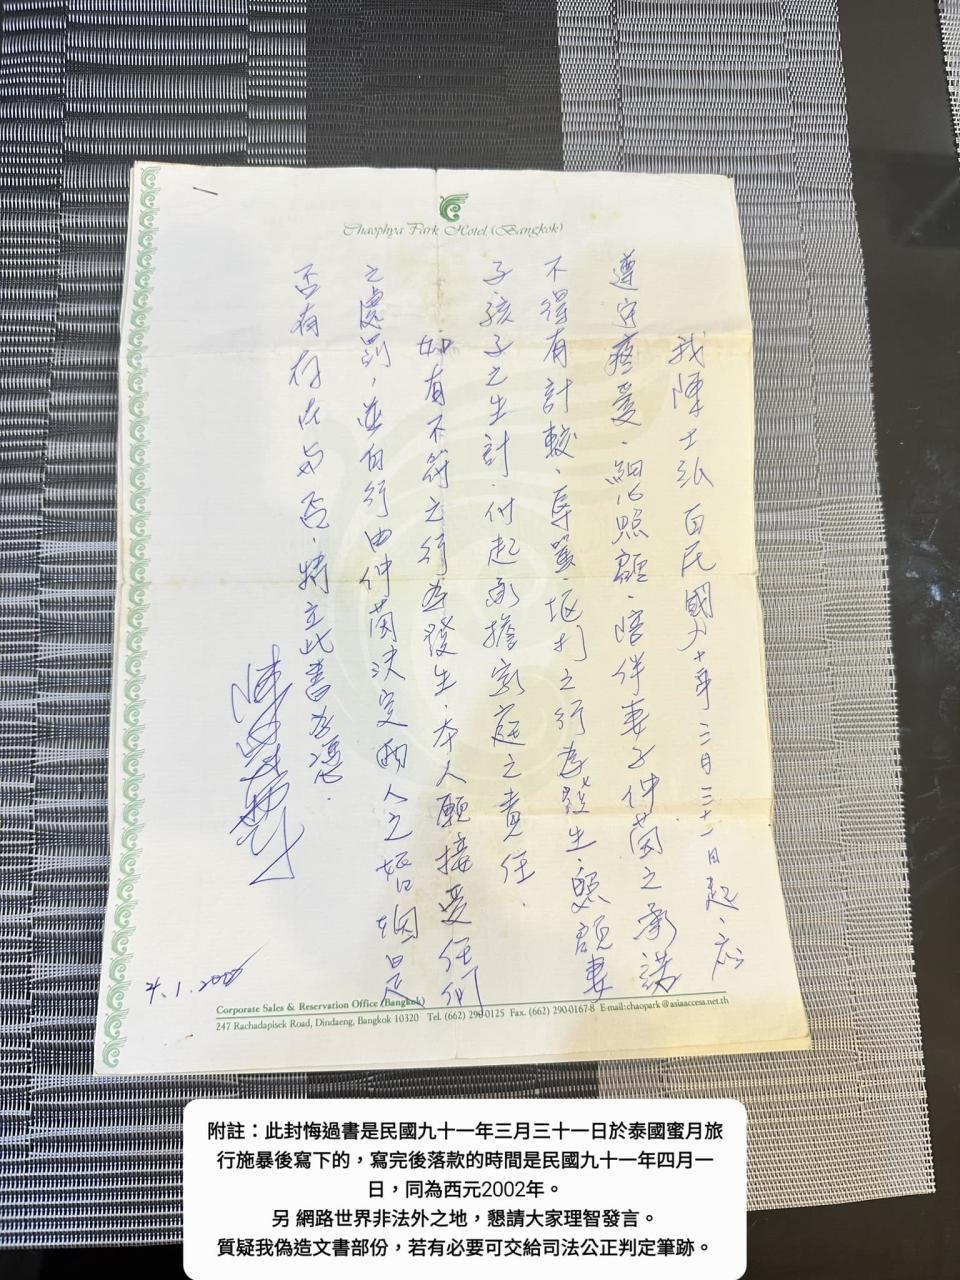 Chaophya Park Hotel (Bangkok)
我陳士泓自民國九十年三月三十一日起、應
遵守疼愛、細心照顧、陪伴妻子仲茵之承諾
不得有計較、辱罵、毆打之行為發生、照顧妻
子、孩子之生計、付起承擔家庭之責任.
如有不符之行為發生、本人願接受任何
之處罰，並自行由仲茵決定兩人之婚姻是
否有存在与否、特立此書為憑.
4.1.
Corporate Sales & Reservation Office (Bangkok)
247 Rachadapisek Road, Dindaeng, Bangkok 10320 Tel. (662) 290-0125 Fax. (662) 290-0167-8 E-mail:chaopark@asiaaccess.net.th
附註：此封悔過書是民國九十一年三月三十一日於泰國蜜月旅
行施暴後寫下的，寫完後落款的時間是民國九十一年四月一
日，同為西元2002年。
另 網路世界非法外之地，懇請大家理智發言。
質疑我偽造文書部份，若有必要可交給司法公正判定筆跡。